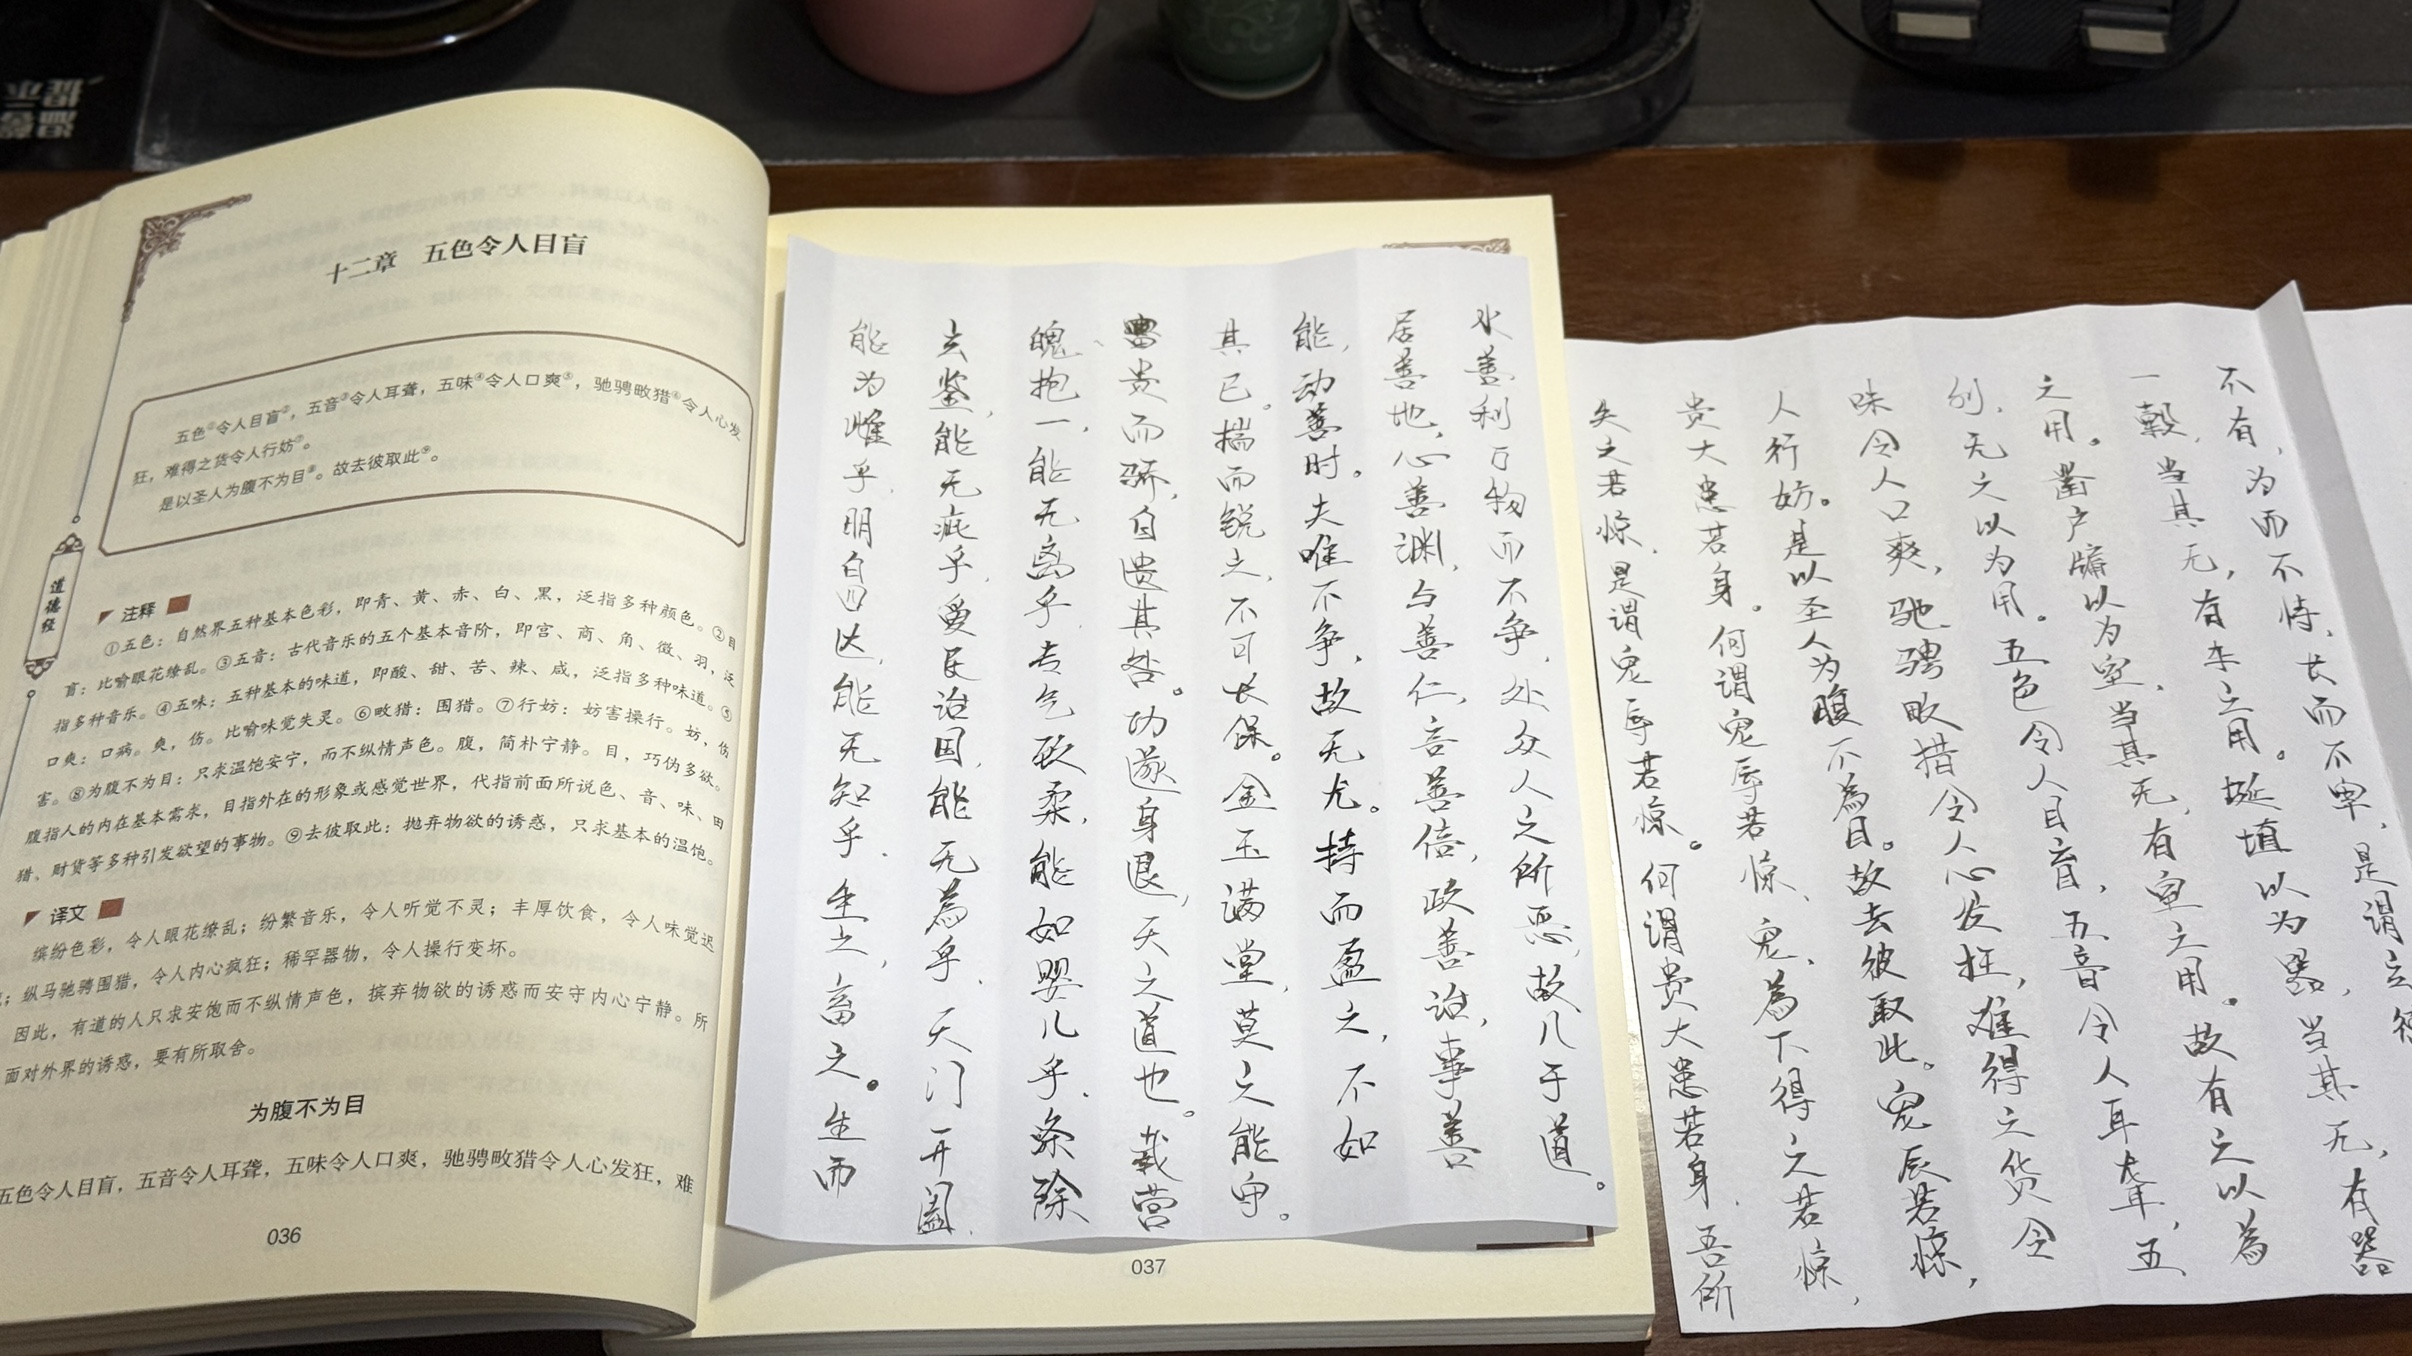 十二章 五色令人目盲
五色①令人目盲②，五音③令人耳聋，五味④令人口爽⑤，驰骋畋猎⑥令人心发
狂，难得之货令人行妨⑦。
是以圣人为腹不为目⑧。故去彼取此⑨。
道德经
注释
①五色：自然界五种基本色彩，即青、黄、赤、白、黑，泛指多种颜色。②目
盲：比喻眼花缭乱。③五音：古代音乐的五个基本音阶，即宫、商、角、徵、羽，泛
指多种音乐。④五味：五种基本的味道，即酸、甜、苦、辣、咸，泛指多种味道。⑤
口爽：口病。爽，伤。比喻味觉失灵。⑥畋猎：围猎。⑦行妨：妨害操行。妨，伤
害。⑧为腹不为目：只求温饱安宁，而不纵情声色。腹，简朴宁静。目，巧伪多欲。
腹指人的内在基本需求，目指外在的形象或感觉世界，代指前面所说色、音、味、田
猎、财货等多种引发欲望的事物。⑨去彼取此：抛弃物欲的诱惑，只求基本的温饱。
译文
缤纷色彩，令人眼花缭乱；纷繁音乐，令人听觉不灵；丰厚饮食，令人味觉迟
；纵马驰骋围猎，令人内心疯狂；稀罕器物，令人操行变坏。
因此，有道的人只求安饱而不纵情声色，摈弃物欲的诱惑而安守内心宁静。所
面对外界的诱惑，要有所取舍。
为腹不为目
五色令人目盲，五音令人耳聋，五味令人口爽，驰骋畋猎令人心发狂，难
036
水善利万物而不争，处众人之所恶，故几于道。
居善地，心善渊，与善仁，言善信，政善治，事善
能，动善时。夫唯不争，故无尤。持而盈之，不如
其已。揣而锐之，不可长保。金玉满堂，莫之能守。
富贵而骄，自遗其咎。功遂身退，天之道也。载营
魄抱一，能无离乎，专气致柔，能如婴儿乎，涤除
玄鉴，能无疵乎，爱民治国，能无為乎，天门开阖，
能为雌乎，明白四达，能无知乎，生之，畜之。生而
037
不有，为而不恃，长而不宰，是谓玄德
一毂，当其无，有车之用。埏埴以为器，当其无，有器
之用。凿户牖以为室，当其无，有室之用。故有之以為
利，无之以为用。五色令人目盲，五音令人耳聋，五
味令人口爽，驰骋畋猎令人心发狂，难得之货令
人行妨。是以圣人为腹不為目。故去彼取此。宠辱若惊，
贵大患若身。何谓宠辱若惊，宠，為下得之若惊，
失之若惊，是谓宠辱若惊。何谓贵大患若身，吾所